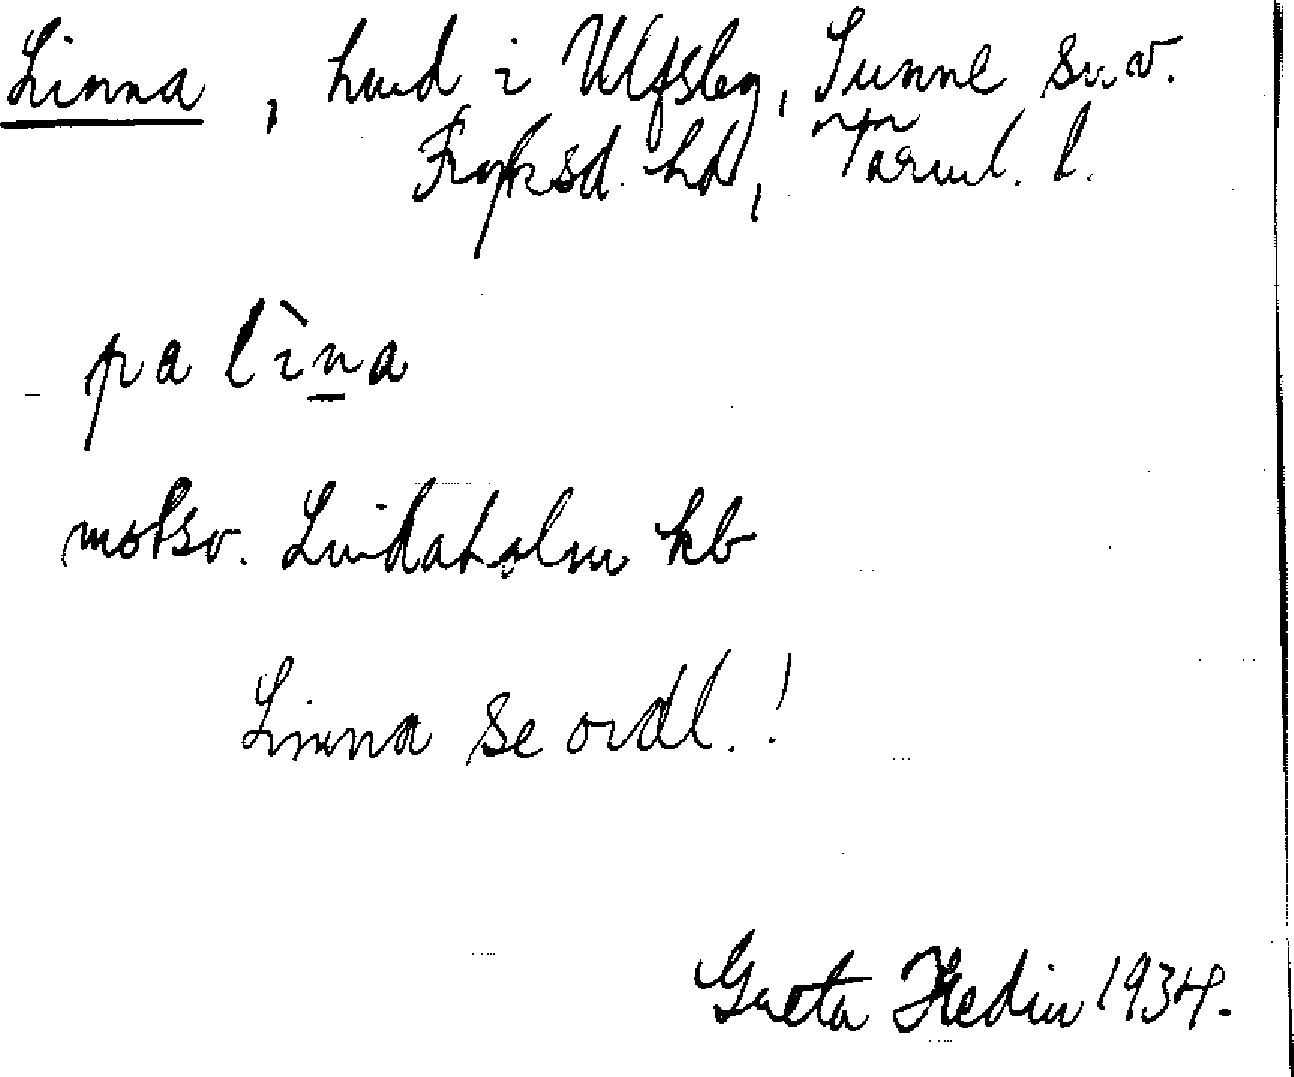 Linna, hmd i Ulfsbg, Sunne sn. v.
Fryksd. hd, Värml. l.
pa lìna
motsv. Lindaholm kb
Linna se ordl.!
Greta Hedin 1934.